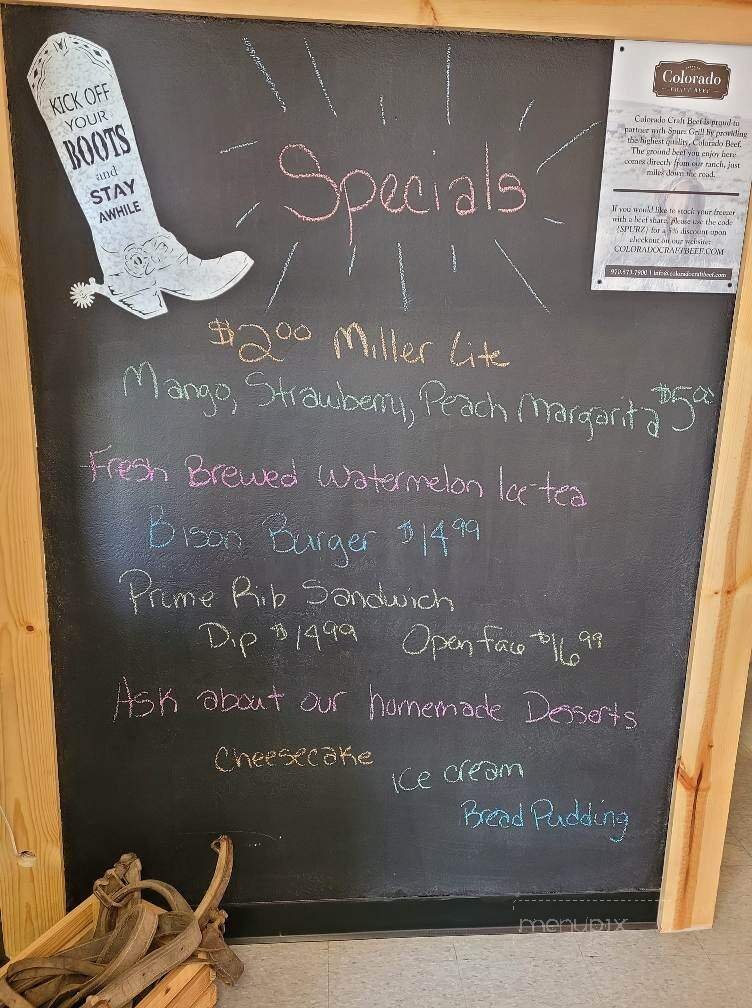 KICK OFF
YOUR
BOOTS
and
STAY
AWHILE
Colorado
CRAFT BEEF
Colorado Craft Beef is proud to
partner with Spurz Grill by providing
the highest quality, Colorado Beef.
The ground beef you enjoy here
comes directly from our ranch, just
miles down the road.
If you would like to stock your freezer
with a beef share, please use the code
(SPURZ) for a 5% discount upon
checkout on our website:
COLORADOCRAFTBEEF.COM
970.573.7900 | info@coloradocraftbeef.com
Specials
$2.00 Miller Lite
Mango, Strawberry, Peach Margarita $5.00
Fresh Brewed Watermelon Ice tea
Bison Burger $14.99
Prime Rib Sandwich
Dip $14.99 Open face $16.99
Ask about our homemade Desserts
Cheesecake
Ice cream
Bread Pudding
menupix